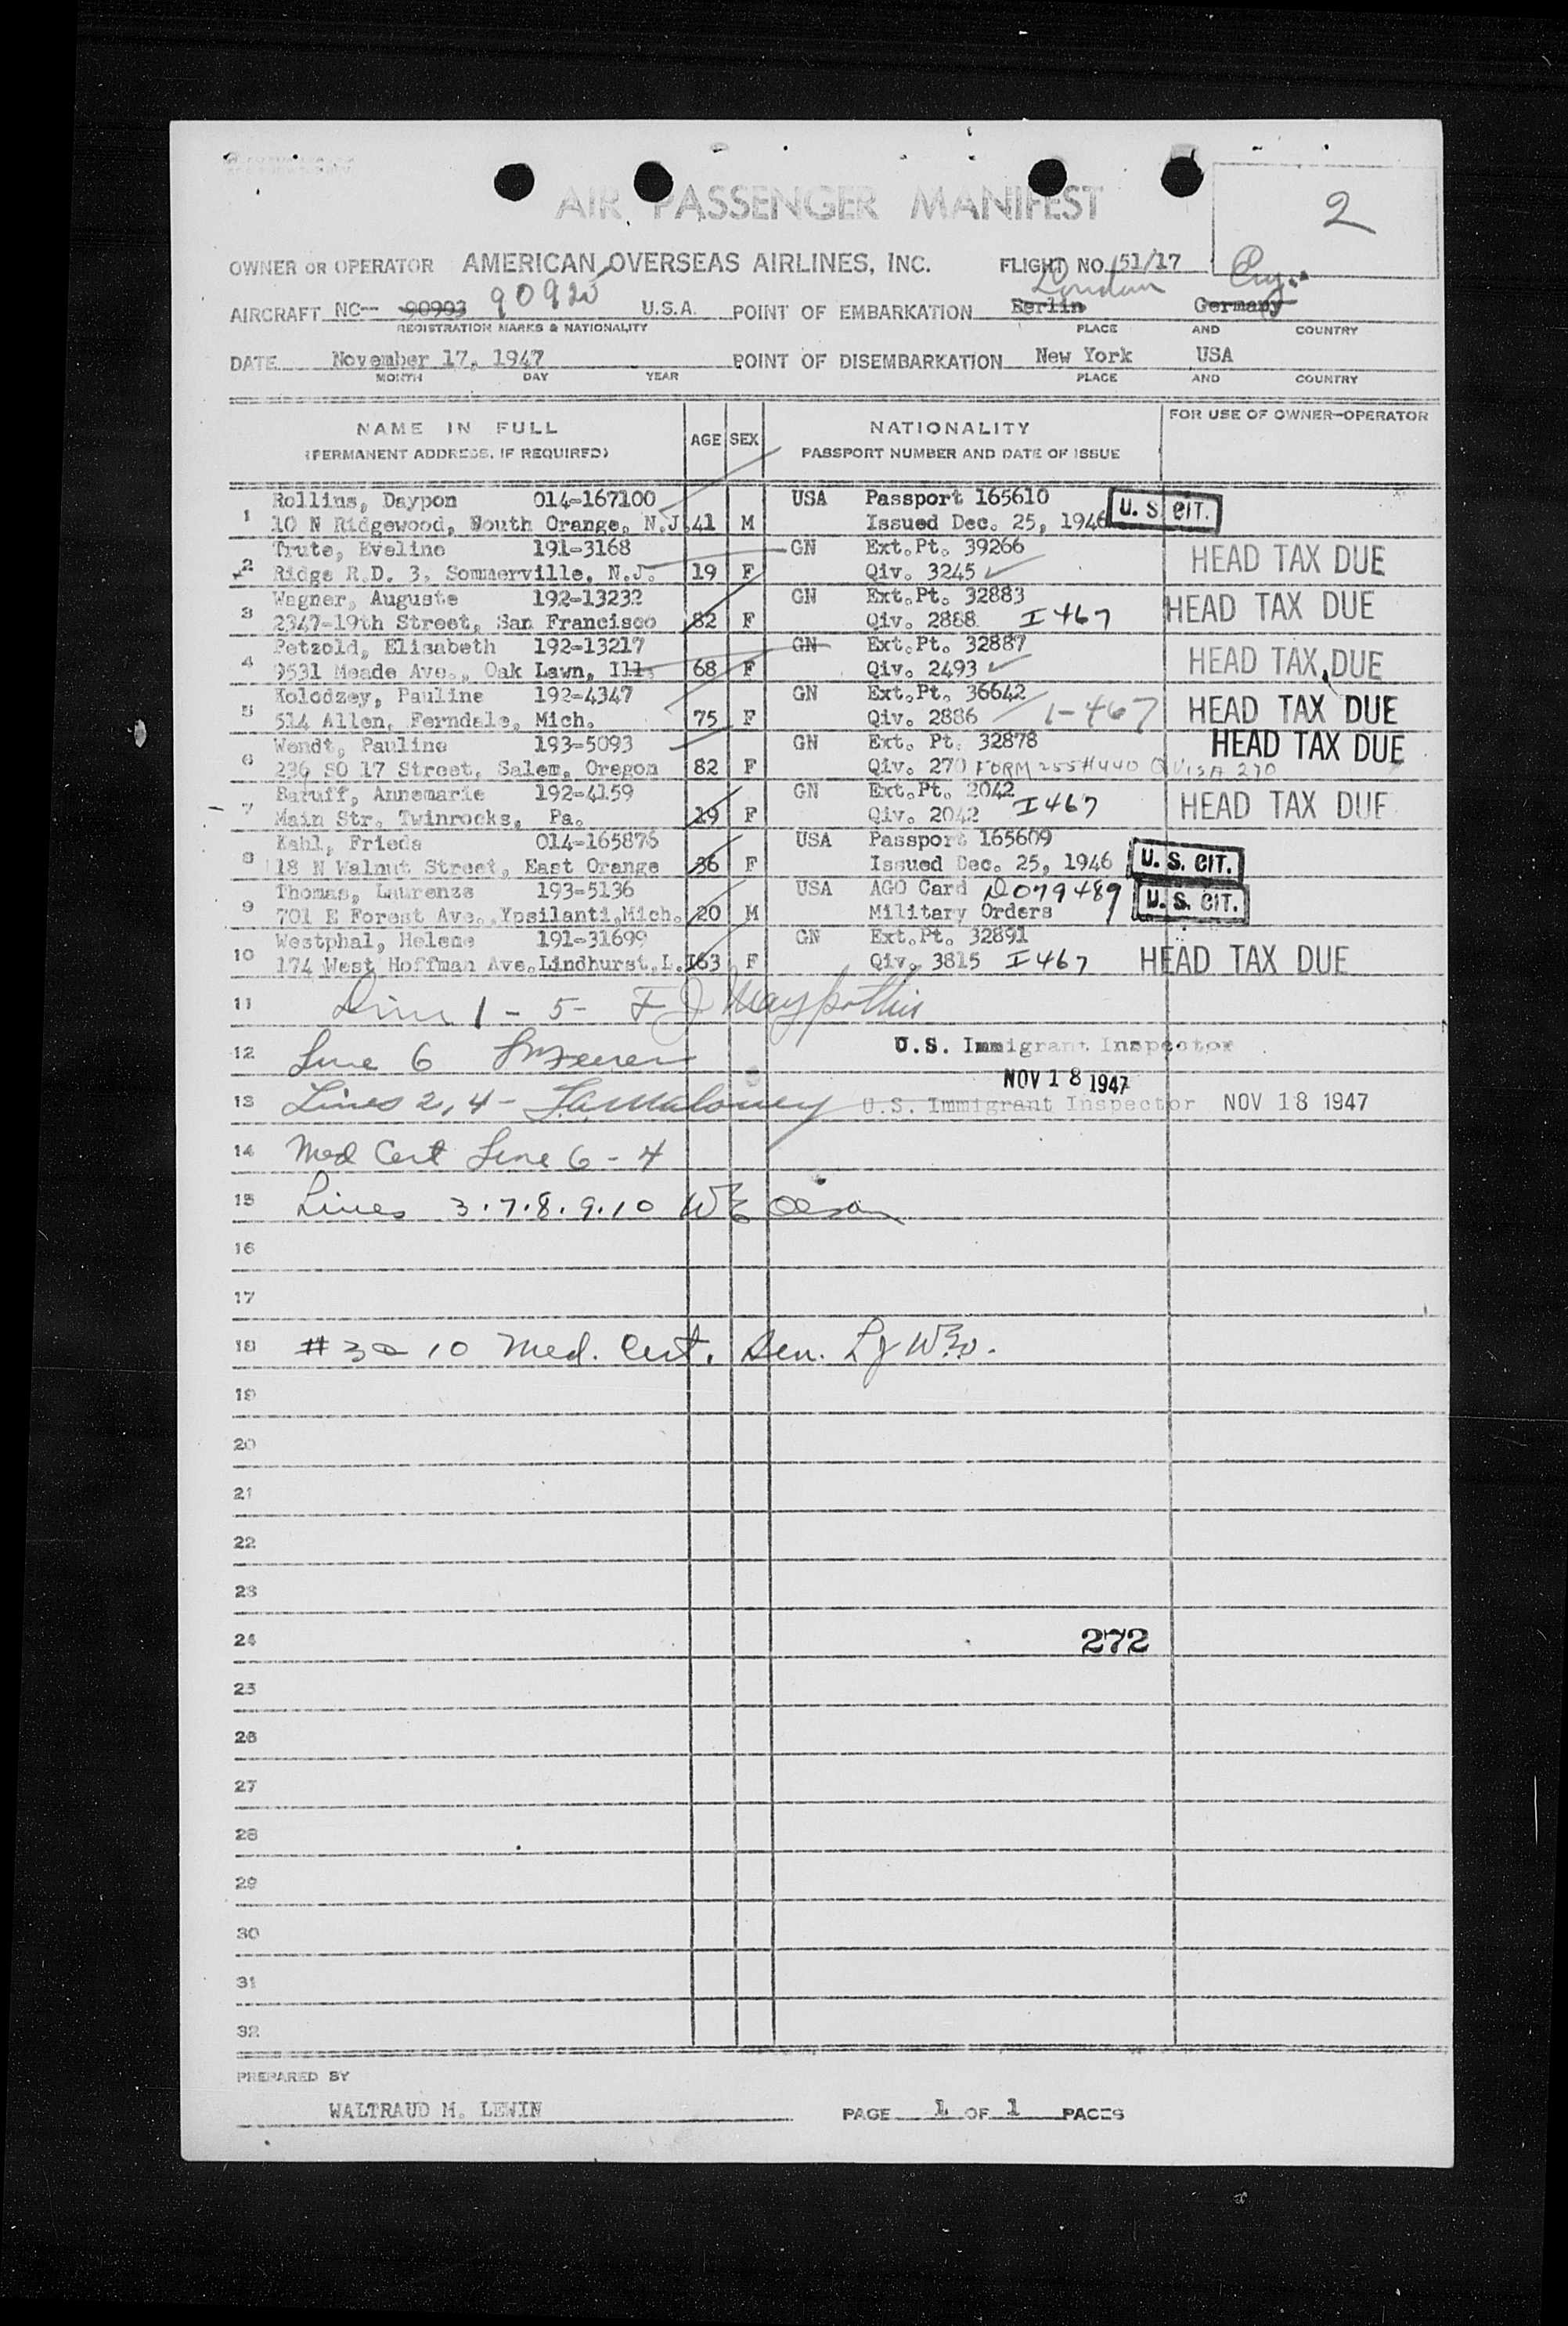 2
AIR PASSENGER MANIFEST
OWNER OR OPERATOR AMERICAN OVERSEAS AIRLINES, INC. FLIGHT NO. 51/17
London Eng.
AIRCRAFT NC-- 90903 90920 U.S.A. POINT OF EMBARKATION Berlin Germany
REGISTRATION MARKS & NATIONALITY PLACE AND COUNTRY
DATE November 17, 1947 POINT OF DISEMBARKATION New York USA
MONTH DAY YEAR PLACE AND COUNTRY
NAME IN FULL AGE SEX NATIONALITY FOR USE OF OWNER-OPERATOR
(PERMANENT ADDRESS, IF REQUIRED) PASSPORT NUMBER AND DATE OF ISSUE
Rollins, Daypon 014-167100 USA Passport 165610
1 10 N Ridgewood, South Orange, N.J. 41 M Issued Dec. 25, 1946 U. S. CIT.
Trute, Eveline 191-3168 GN Ext.Pt. 39266 HEAD TAX DUE
2 Ridge R.D. 3, Sommerville, N.J. 19 F Qiv. 3245
Wagner, Auguste 192-13232 GN Ext.Pt. 32883 HEAD TAX DUE
3 2347-19th Street, San Francisco 82 F Qiv. 2888 I 467
Petzold, Elisabeth 192-13217 GN Ext.Pt. 32887 HEAD TAX DUE
4 9531 Meade Ave., Oak Lawn, Ill. 68 F Qiv. 2493
Kolodzey, Pauline 192-4347 GN Ext.Pt. 36642 HEAD TAX DUE
5 514 Allen, Ferndale, Mich. 75 F Qiv. 2886 1-467
Wendt, Pauline 193-5093 GN Ext. Pt. 32878 HEAD TAX DUE
6 236 SO 17 Street, Salem, Oregon 82 F Qiv. 270 FORM 255#440 Q VISA 270
Baruff, Annemarie 192-4159 GN Ext.Pt. 2042 HEAD TAX DUE
7 Main Str. Twinrocks, Pa. 19 F Qiv. 2042 I 467
Kahl, Frieda 014-165876 USA Passport 165609
8 18 N Walnut Street, East Orange 36 F Issued Dec. 25, 1946 U. S. CIT.
Thomas, Laurenze 193-5136 USA AGO Card D079489
9 701 E Forest Ave., Ypsilanti, Mich. 20 M Military Orders U. S. CIT.
Westphal, Helene 191-31699 GN Ext.Pt. 32891
10 174 West Hoffman Ave. Lindhurst, L.I 63 F Qiv. 3815 I 467 HEAD TAX DUE
11 1 - 5 -
12 Line 6 U.S. Immigrant Inspector
NOV 18 1947
13 Lines 2, 4 - Maloney U.S. Immigrant Inspector NOV 18 1947
14 Med Cert Line 6 - 4
15 Lines 3.7.8.9.10 W E Olson
16
17
18 #3 10 Med. Cert.
19
20
21
22
23
24 272
25
26
27
28
29
30
31
32
PREPARED BY
WALTRAUD M. LEWIN PAGE 1 OF 1 PAGES